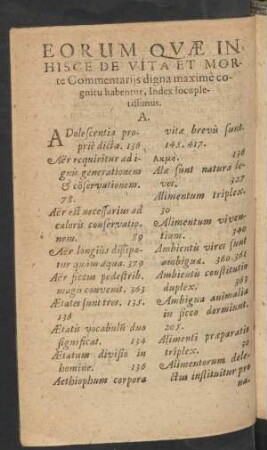 EORUM QVÆ IN
HISCE DE VITA ET MOR-
te Commentarijs digna maximè co-
gnitu habentur, Index locuple-
tissimus.
A.
ADolescentia pro-
priè dicta. 136
Aër requiritur ad i-
gnis generationem
& cōservationem.
78.
Aër est necessarius ad
caloris conservatio-
nem. 89
Aër longiùs dissipa-
tur quàm aqua. 379
Aër siccus pedestrib.
magis convenit. 363
Ætates sunt tres. 135.
136
Ætatis vocabulū duo
significat. 134
Ætatum divisio in
homine. 136
Aethiophum corpora
vitæ brevis sunt.
145. 417.
Ακμὴ. 136
Alæ sunt natura le-
ves. 327
Alimentum triplex.
30
Alimentum viven-
tium. 340
Ambientis vires sunt
ambiguæ. 360. 361
Ambientis constitutio
duplex. 363
Ambigua animalia
in sicco dormiunt.
205.
Alimenti præparatio
triplex. 30
Alimentorum dele-
ctus instituitur pro
na.